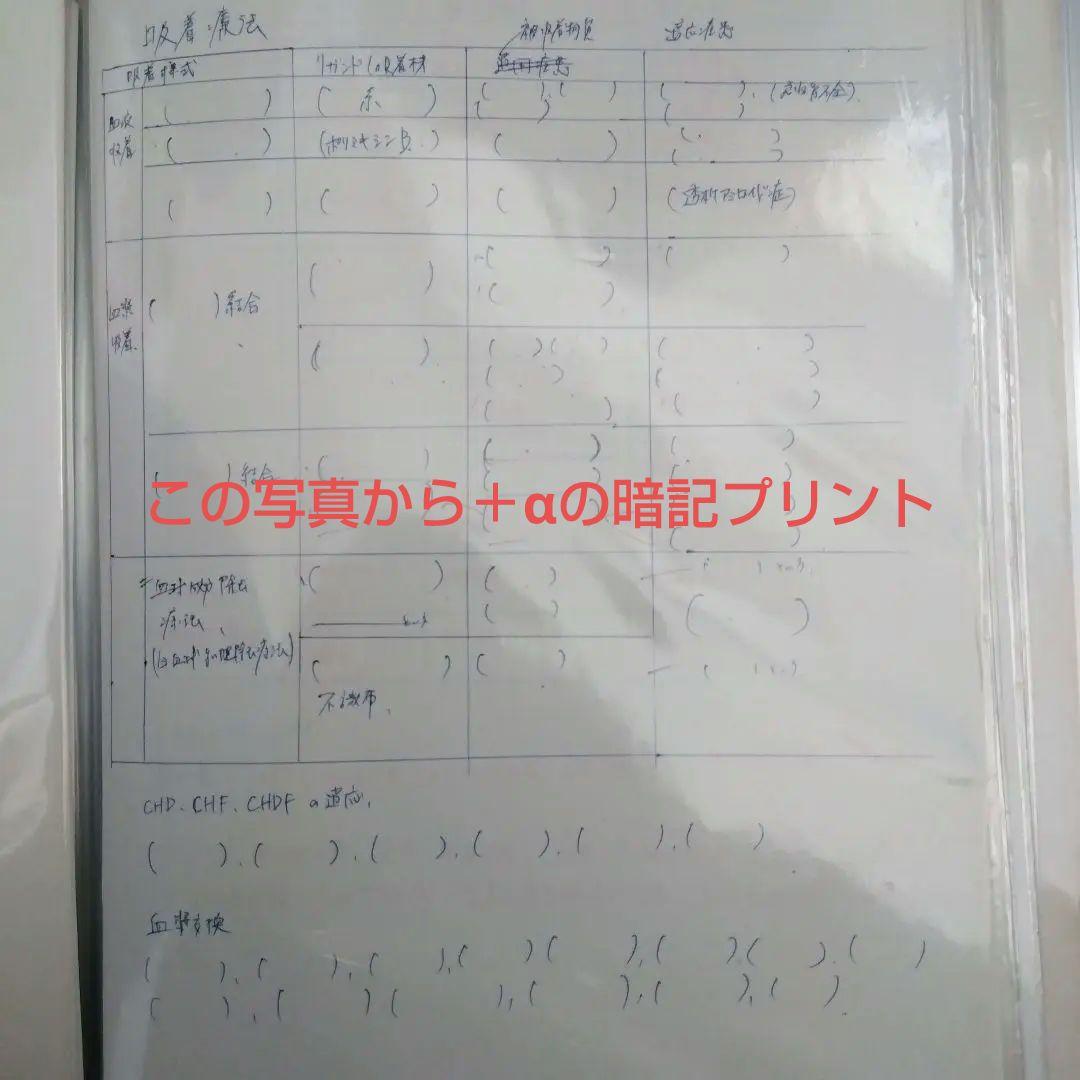 吸着療法
被吸着物質 適応疾患
吸着様式 リガンド(吸着材 適用疾患
血液
吸着
( ) ( 炭 ) ( ).( )
( ) ( ).(
( )
( ) (ポリミキシンB.) ( ) ( )
( )
( ) ( ) ( ) (透析アミロイド症)
血漿
吸着.
( )結合 ( ) ( ) ( )
( )
( ) ( )( ) ( )
( ) ( )
( ) ( )
( )結合 ( ) ( ) ( )
この写真から+αの暗記プリント
血球成分除去
療法、
( ) ( )
( )
( ) ( )
不織布、
CHD、CHF、CHDF の適応、
( )、( )、( )、( )、( )、( )
血漿交換
( )、( )、( )、( )( )、( )、( )、( )
( )、( )( )、( )、( )、( )